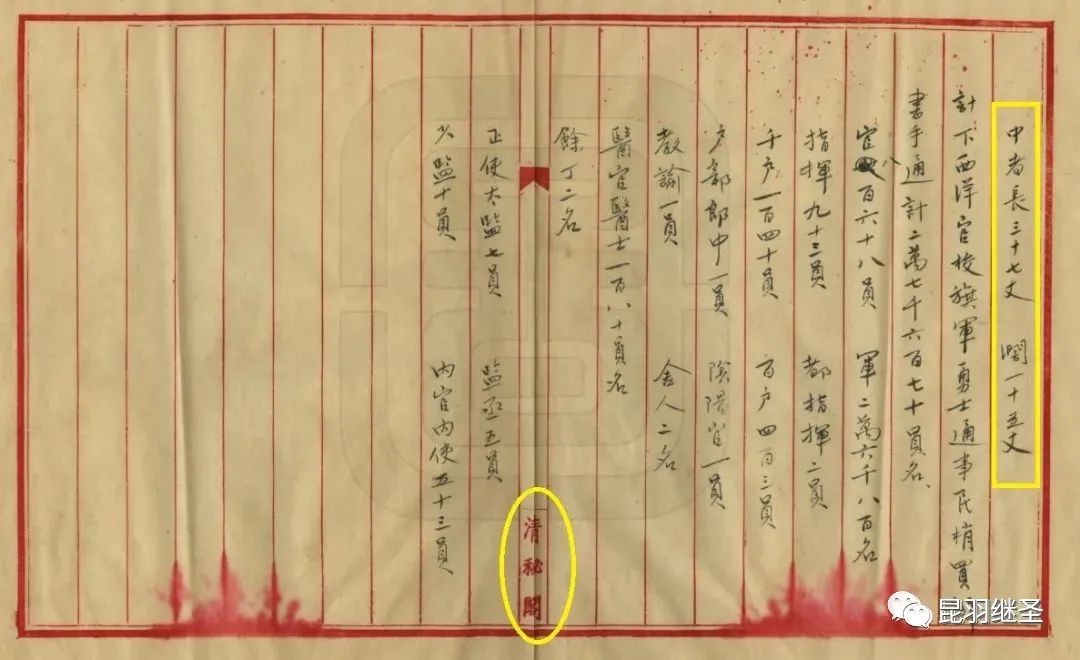 中者長三十七丈 濶一十五丈
計下西洋官校旗軍勇士通事民梢買
書手通計二萬七千六百七十員名
官八百六十八員 軍二萬六千八百名
指揮九十三員 都指揮二員
千户一百四十員 百户四百三員
户部郎中一員 陰陽官一員
教諭一員 舍人二名
醫官醫士一百八十員名
餘丁二名
清秘閣
正使太監七員 監丞五員
少監十員 内官内使五十三員
昆羽继圣